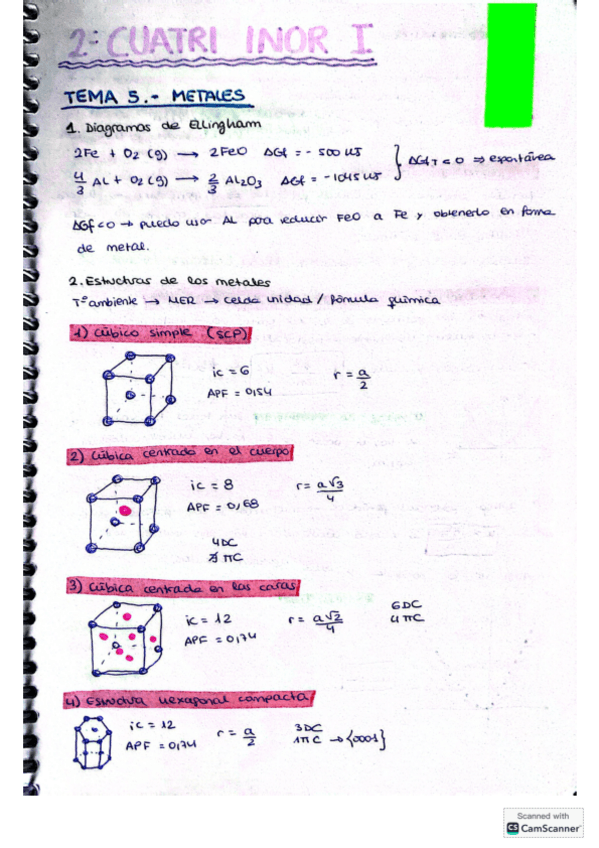 2º CUATRI INOR I
TEMA 5.- METALES
1. Diagramas de Ellingham
2Fe + O2 (g) → 2FeO ΔGf = - 500 kJ
4/3 AL + O2 (g) → 2/3 AL2O3 ΔGf = - 1045 kJ
} ΔGf T < 0 ⇒ espontánea
ΔGf < 0 → puedo usar AL para reducir FeO a Fe y obtenerlo en forma
de metal.
2. Estructuras de los metales
Tª ambiente → MER → celda unidad / fórmula química
1) Cúbico simple (SCP)
ic = 6
APF = 0,54
r = a/2
2) Cúbica centrada en el cuerpo
ic = 8
APF = 0,68
r = a√3/4
4DC
πC
3) Cúbica centrada en las caras
ic = 12
APF = 0,74
r = a√2/4
6DC
4πC
4) Estructura hexagonal compacta
ic = 12
APF = 0,74
r = a/2
3DC
1πC → {0001}
Scanned with
CS CamScanner